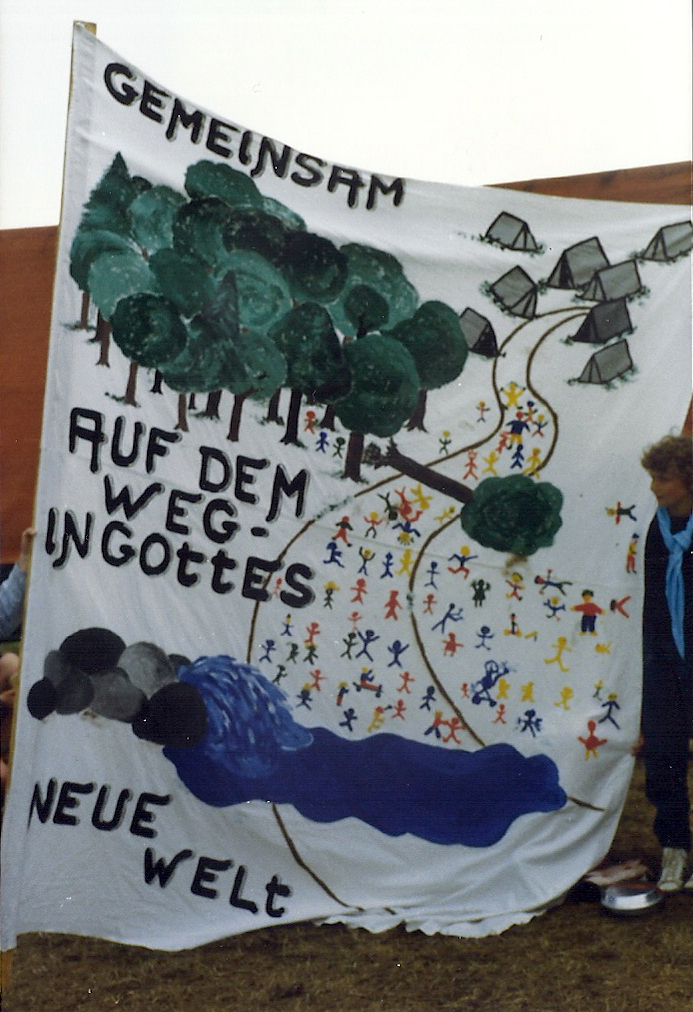 GEMEINSAM
AUF DEM
WEG-
IN GOttES
NEUE
WELt